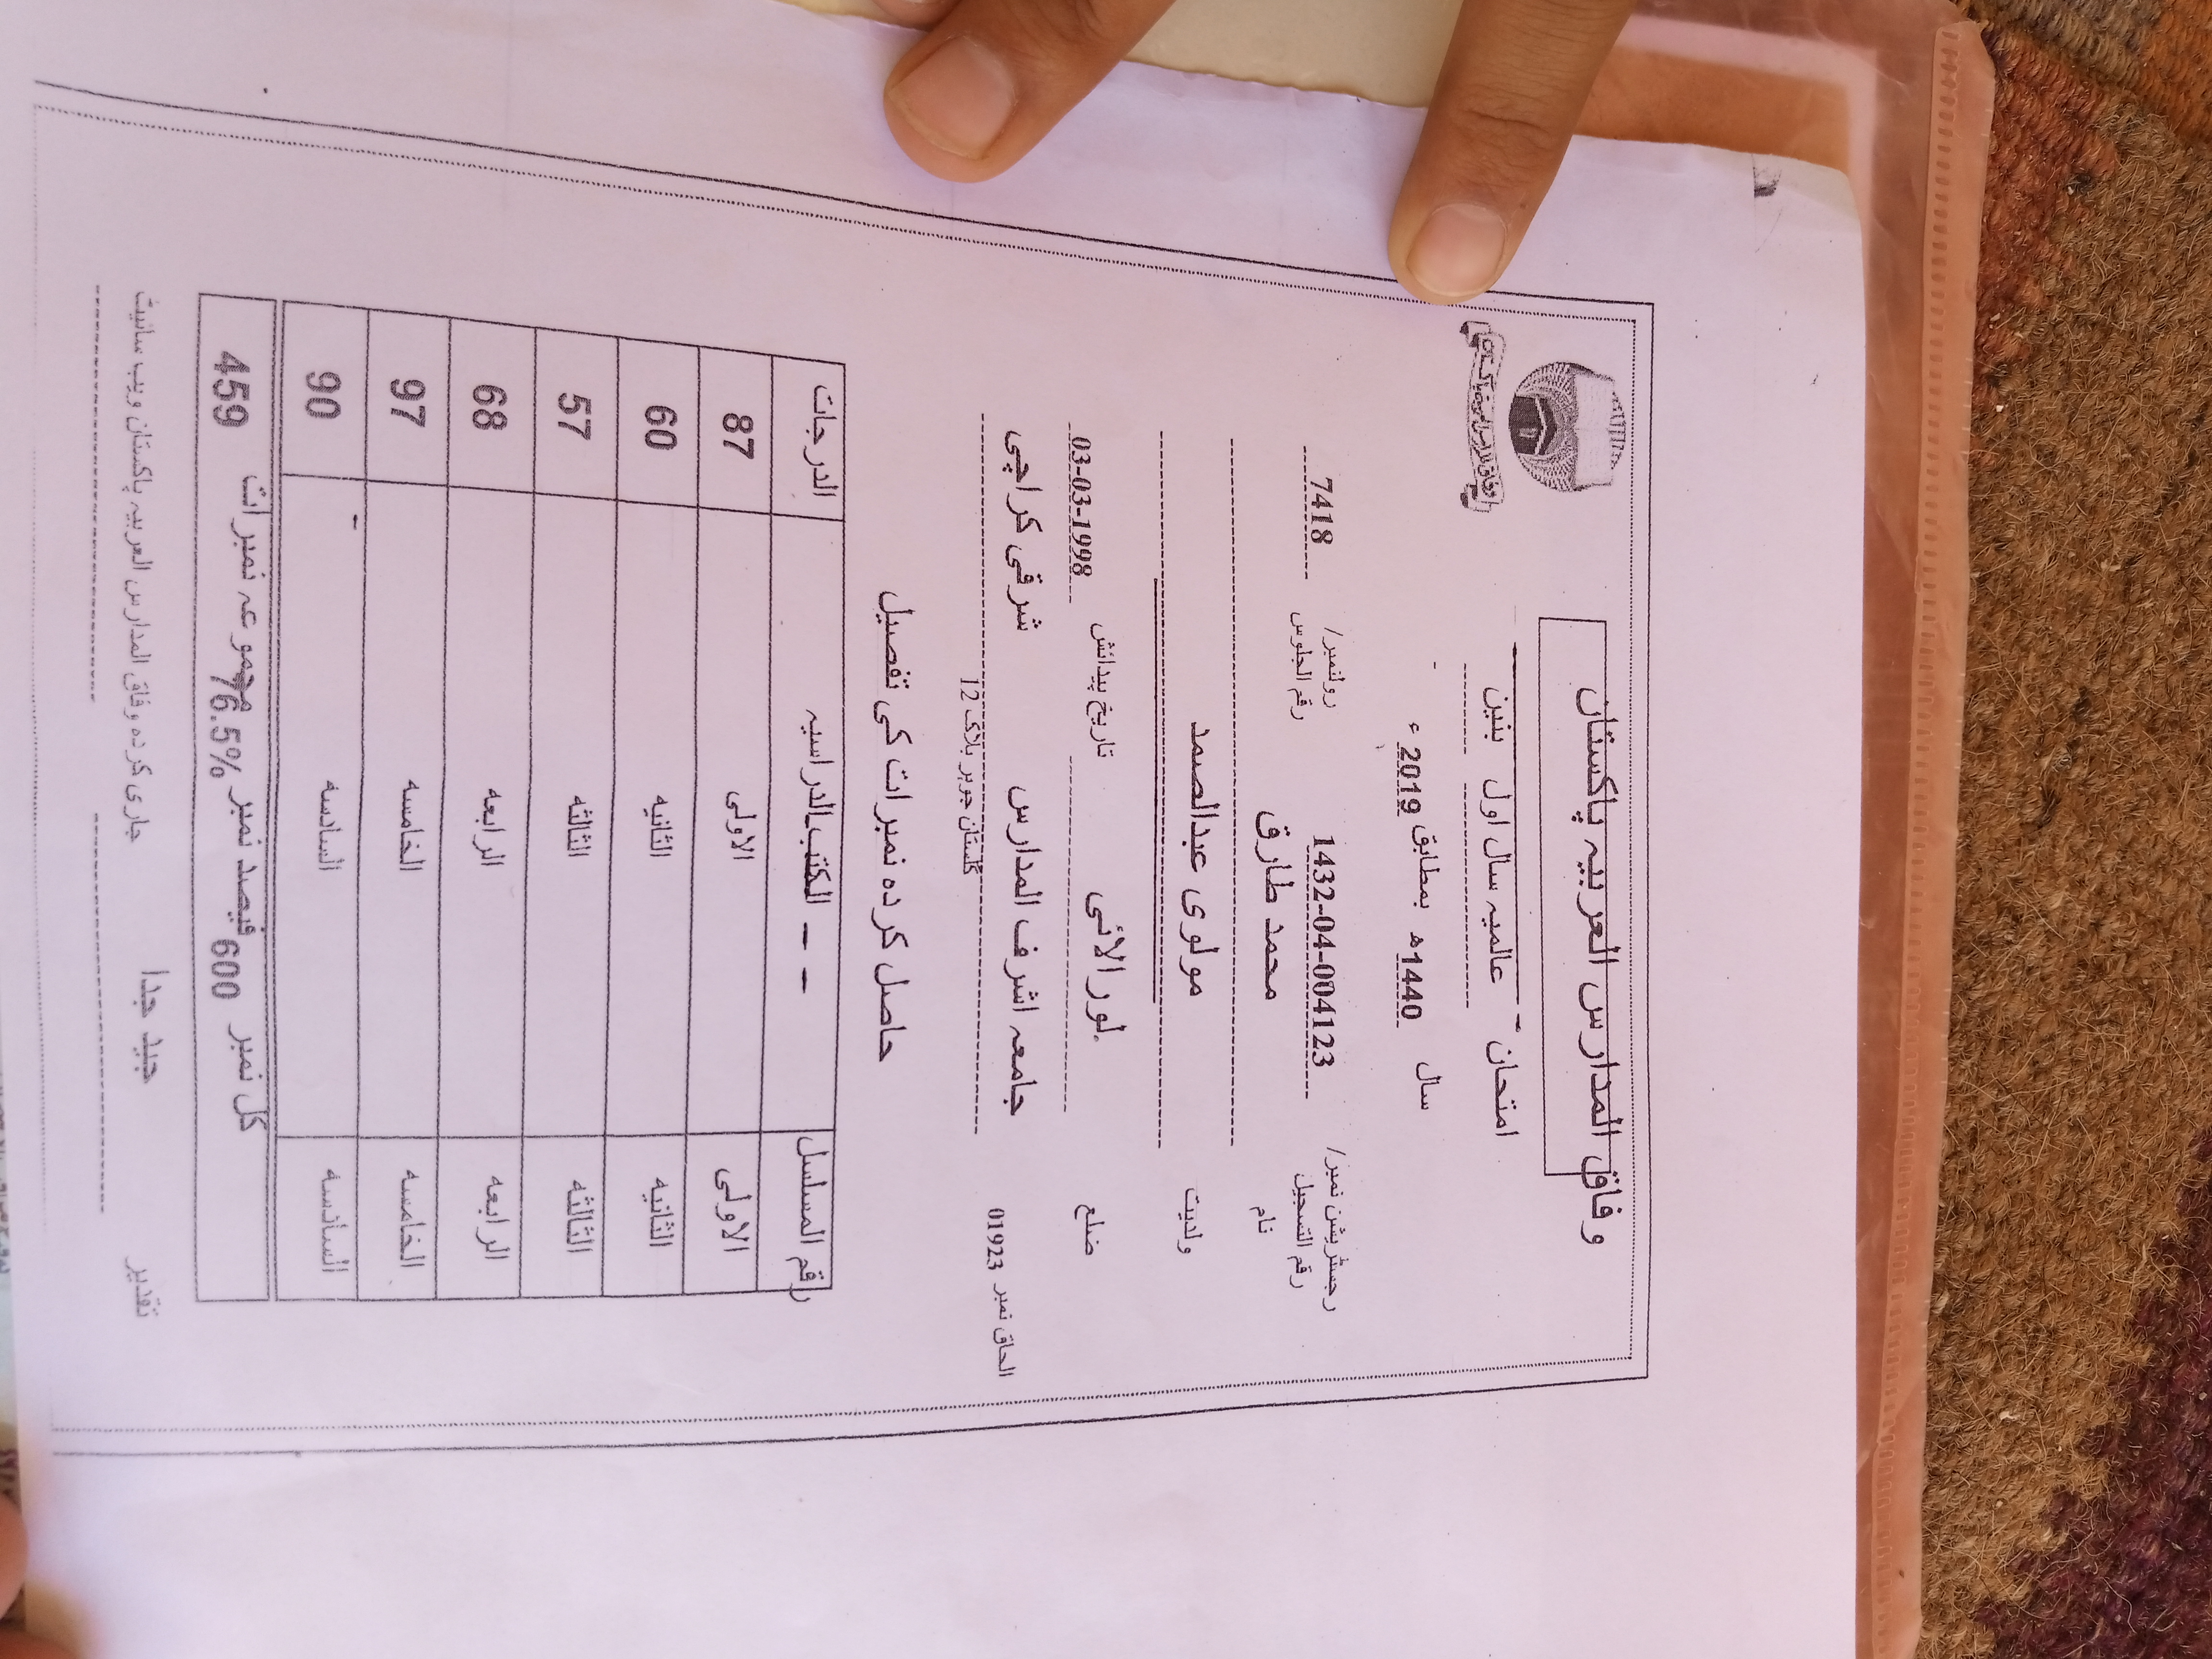 وفاق المدارس العربیہ پاکستان
امتحان عالمیہ سال اول بنین
سال 1440ھ بمطابق 2019ء
رجسٹریشن نمبر/ رقم التسجیل 1432-04-004123 رولنمبر/ رقم الجلوس 7418
نام محمد طارق
ولدیت مولوی عبدالصمد
ضلع لورالائی تاریخ پیدائش 03-03-1998
الحاق نمبر 01923 جامعہ اشرف المدارس شرقی کراچی
گلستان جوہر بلاک 12
حاصل کردہ نمبرات کی تفصیل
رقم المسلسل الکتب الدراسیہ - - الدرجات
الاولی الاولی 87
الثانیہ الثانیہ 60
الثالثہ الثالثہ 57
الرابعہ الرابعہ 68
الخامسہ الخامسہ 97
السادسہ السادسہ 90
کل نمبر 600 فیصد نمبر 76.5% مجموعہ نمبرات 459
تقدیر جید جدا جاری کردہ وفاق المدارس العربیہ پاکستان ویب سائیٹ